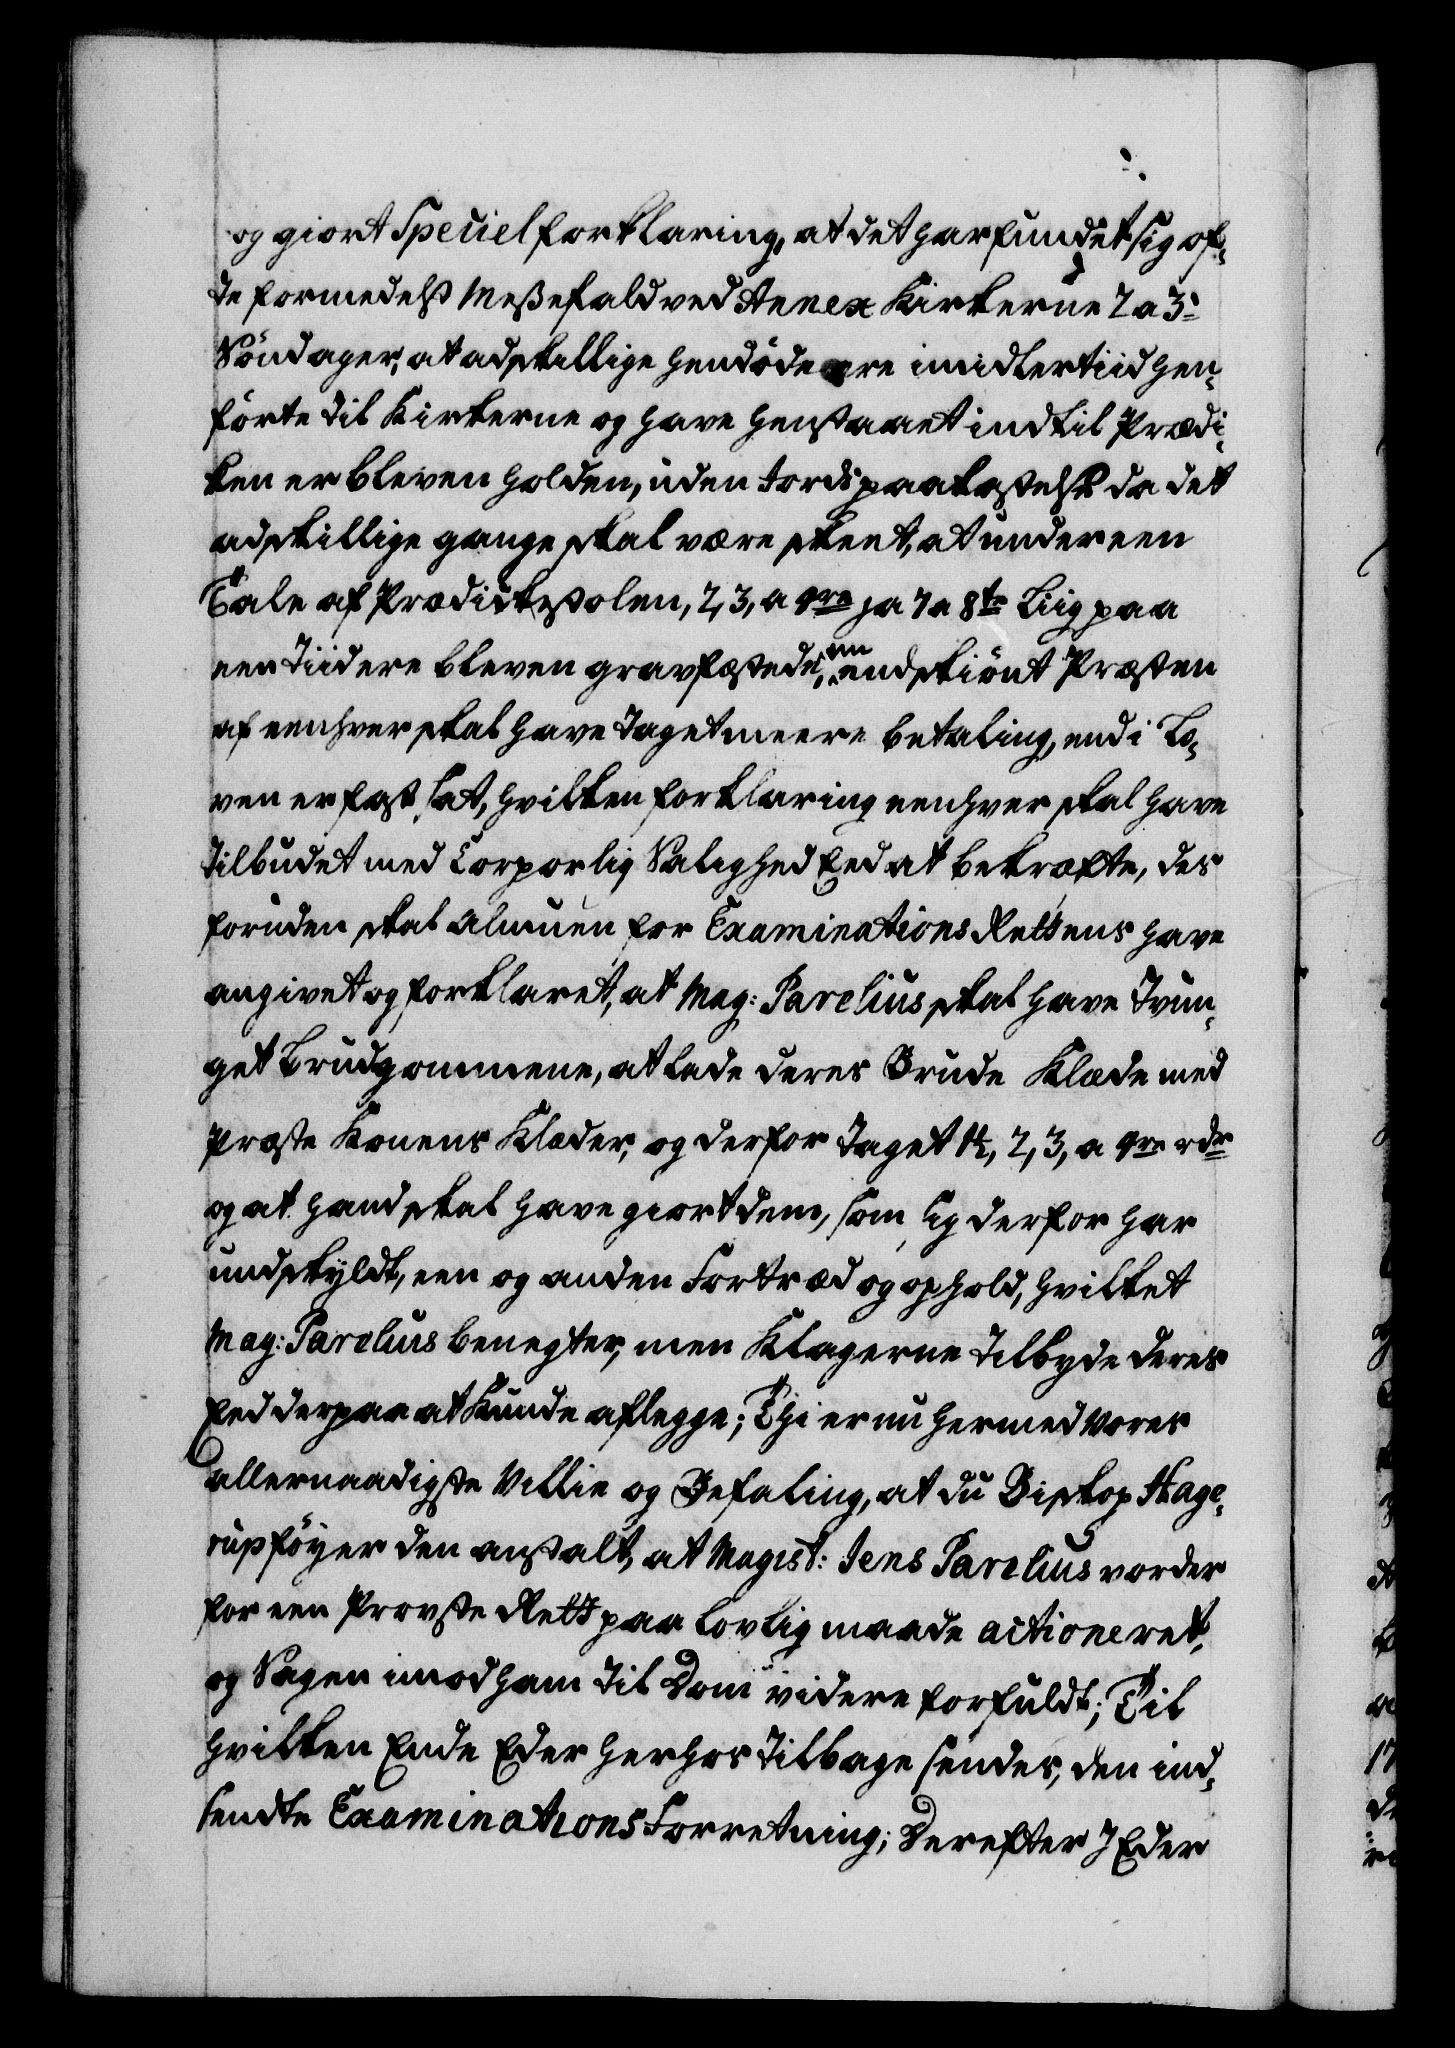 og giort Speciel forklaring, at det har fundet sig of,
te formedelst Messefald ved Annex Kirkerne 2 a 3:
Söndager, at adskillige hendöde ere imidlertiid hen,
förte til Kirkerne og have henstaaet indtil Prædi,
ken er bleven holden, uden Jords paakastelse da det
adskillige gange skal være skeet, at under een
Tale af Prædikestolen, 2, 3, a 4re ja 7 a 8te Liig paa
een Tiid ere bleven gravfæstede, endskiönt Præsten
af eenhver skal have taget meere betaling, end i Lo,
ven er fast sat, hvilken forklaring eenhver skal have
tilbudet med Corporlig Saligheds Eed at bekræfte, des
foruden skal Almuen for Examinations Rettens have
angivet og forklaret, at Mag: Parelius skal have tvun,
get Brudgommene, at lade deres Brude Klæde med
Præste Konens Klæder, og derfor taget 1½, 2, 3, a 4re rdr
og at hand skal have giort dem, som sig derfor har
undskyldt, een og anden Fortræd og ophold, hvilket
Mag: Parelius benegter, men Klagerne tilbyde deres
Eed derpaa at Kunde aflegge; Thi er nu hermed Vores
allernaadigste Villie og Befaling, at du Biskop Hage,
rup föyer den anstalt, at Magist: Jens Parelius vorder
for een Provste Rett paa lovlig maade actioneret,
og Sagen imod ham til Dom videre forfuldt; Til
hvilken Ende Eder herhos tilbage sendes, den ind,
sendte Examinations Forretning; Derefter I Eder